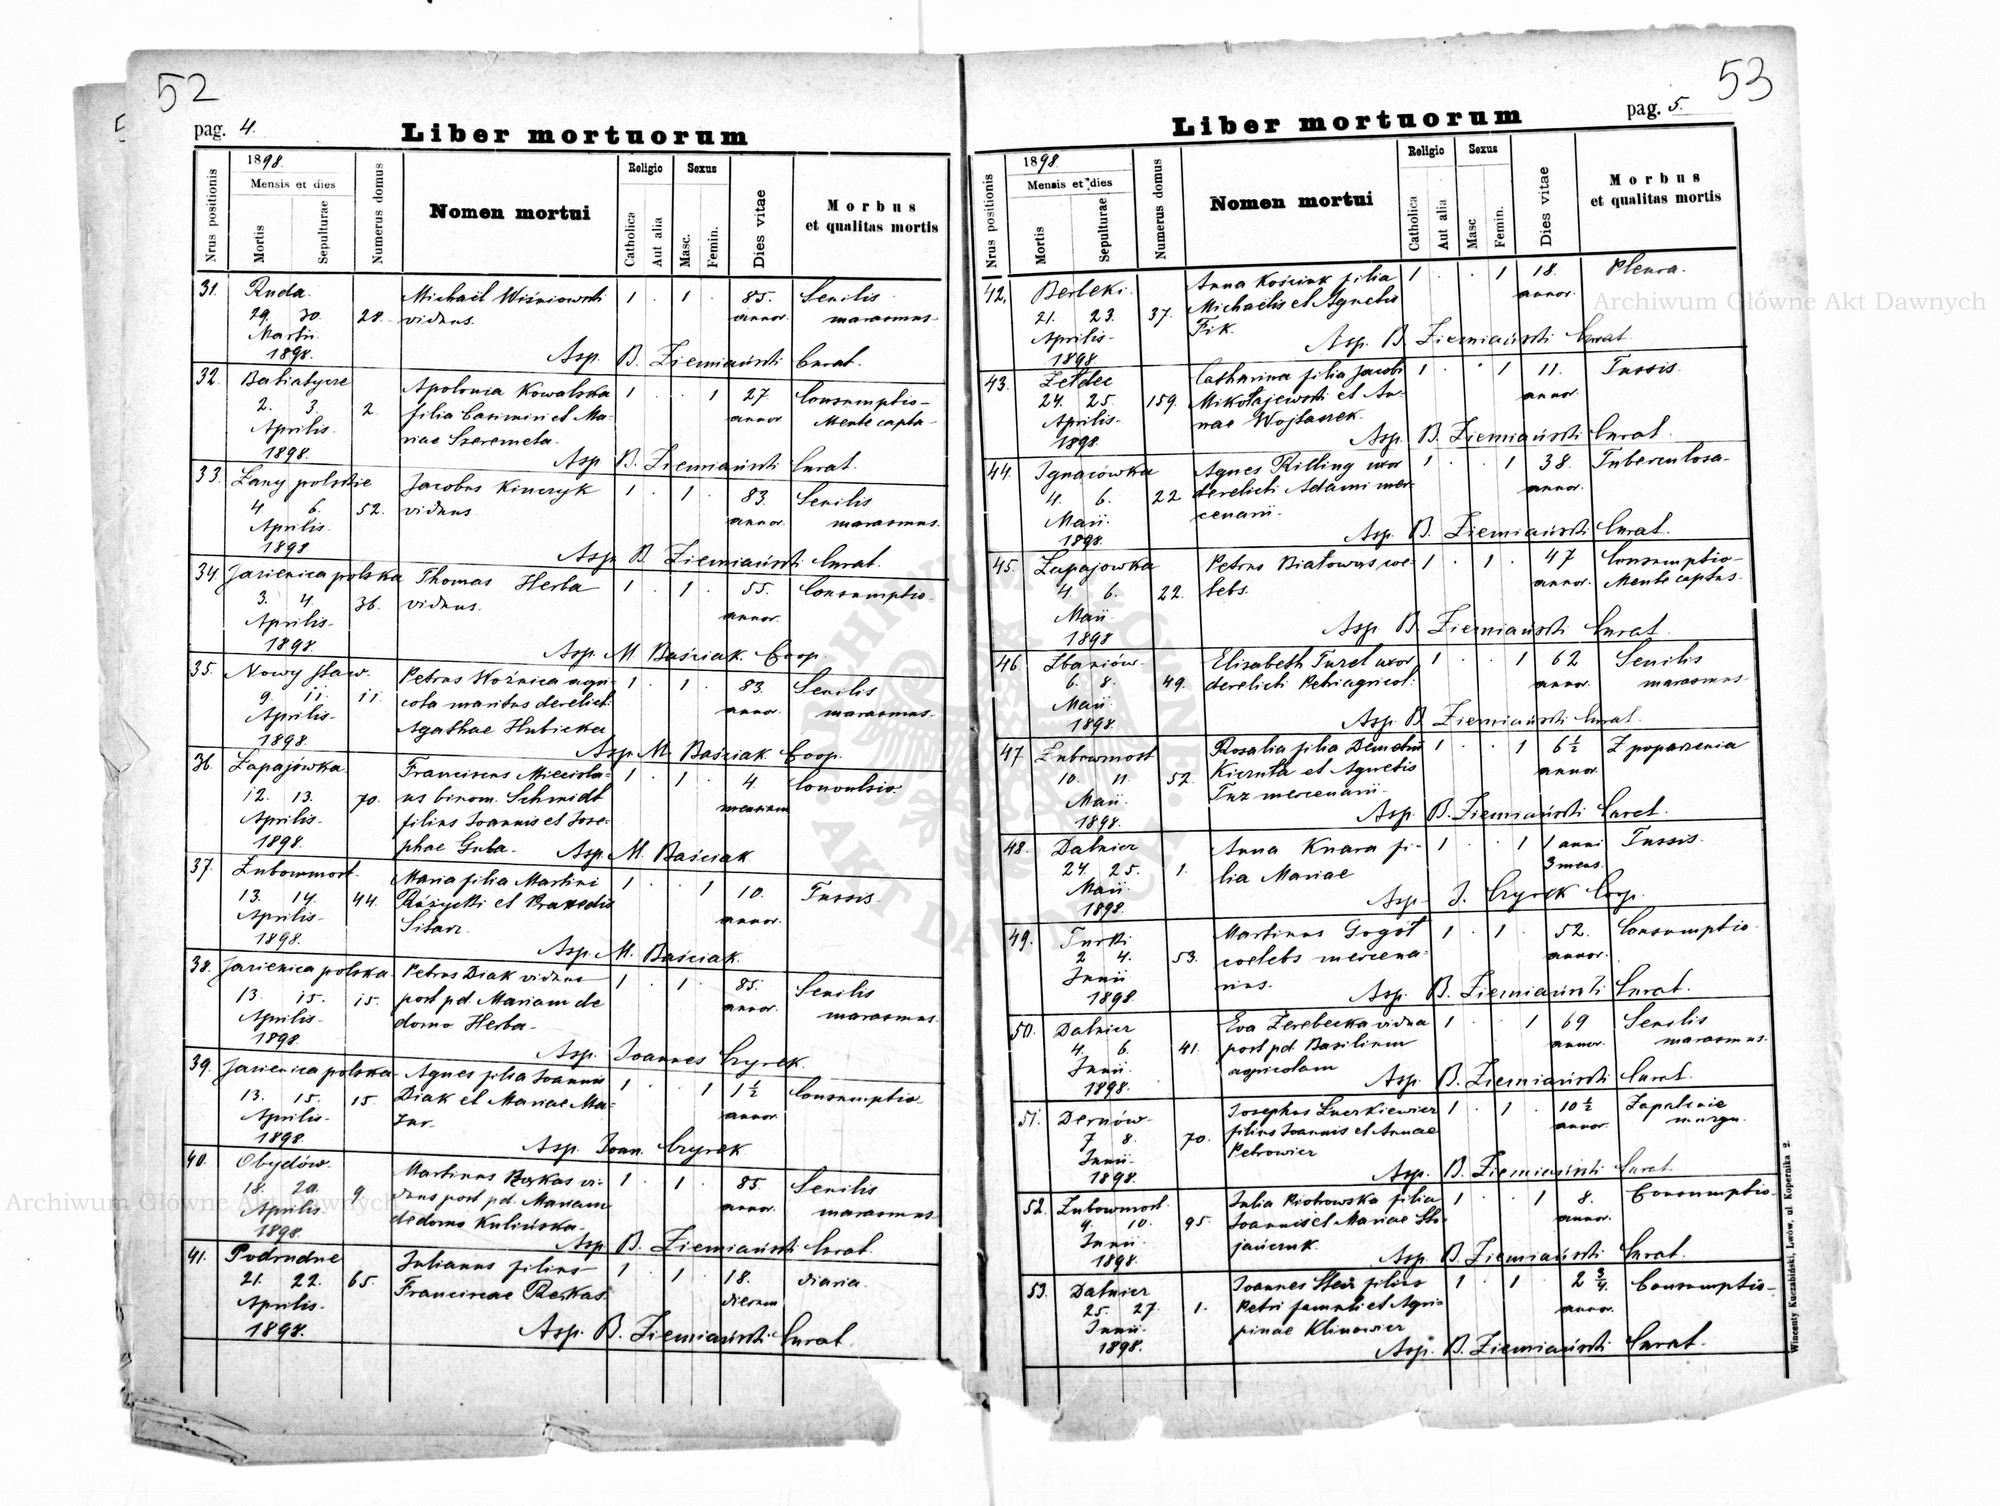 52
pag. 4.
Liber mortuorum
Nrus positionis
1898.
Mensis et dies
Mortis
Sepulturae
Numerus domus
Nomen mortui
Religio
Catholica
Aut alia
Sexus
Masc.
Femin.
Dies vitae
Morbus
et qualitas mortis
31. Ruda. Michaël Wiśniowski 1 . 1 . 85. Senilis
29. 30. 28. viduus. annor. marasmus.
Martii
1898. Asp. B. Ziemiański Curat.
32. Batiatycze Apolonia Kowalska 1 . . 1 27 Consumptio
2. 3. 2. filia Casimiri et Ma- annor. Mente capta
Aprilis. riae Szeremeta.
1898. Asp. B. Ziemiański Curat.
33. Łany polskie Jacobus Kinczyk 1 . 1 . 83. Senilis
4 6. 52. viduus. annor. marasmus.
Aprilis.
1898. Asp. B. Ziemiański Curat.
34. Jasienica polska Thomas Herba 1 . 1 . 55. Consumptio
3. 4. 36. viduus. annor.
Aprilis.
1898. Asp. M. Baściak. Coop.
35. Nowy staw. Petrus Woźnica agri- 1 . 1 . 83. Senilis
9. 11. 11. cola maritus derelict. annor. marasmus.
Aprilis. Agathae Hubicka
1898. Asp. M. Baściak Coop.
36. Zapajówka Franciscus Miecisla- 1 . 1 . 4. Convulsio.
12. 13. 70. us binom. Schmidt mensium
Aprilis. filius Joannis et Jose-
1898. phae Guba. Asp. M. Baściak
37. Żubowmost. Maria filia Martini 1 . . 1 10. Tussis.
13. 14. 44. Różycki et Praxedis annor.
Aprilis. Sitarz.
1898. Asp. M. Baściak.
38. Jasienica polska Petrus Diak viduus 1 . 1 . 85. Senilis
13. 15. 15. post pd. Mariam de annor. marasmus.
Aprilis. domo Herba.
1898. Asp. Joannes Czyrek.
39. Jasienica polska Agnes filia Joannis 1 . . 1 1½ Consumptio
13. 15. 15. Diak et Mariae Ma- annor.
Aprilis. zur.
1898. Asp. Joan. Czyrek
40. Obydów. Martinus vi- 1 . 1 . 85. Senilis
18. 20. 9. duus post pd. Mariam annor. marasmus
Aprilis de domo Kulińska.
1898. Asp. B. Ziemiański Curat.
41. Podrudne Julianus filius 1 . 1 . 18. diaria.
21. 22. 65. Franciscae Rerkas. dierum
Aprilis.
1898. Asp. B. Ziemiański Curat.
53
pag. 5.
Liber mortuorum
Nrus positionis
1898
Mensis et dies
Mortis
Sepulturae
Numerus domus
Nomen mortui
Religio
Catholica
Aut alia
Sexus
Masc
Femin.
Dies vitae
Morbus
et qualitas mortis
42. Berleki. Anna Kościuk filia 1 . . 1 18. Pleura.
21. 23. 37. Michaelis et Agnetis annor.
Aprilis Fik.
1898. Asp. B. Ziemiański Curat
43. Żełdec Catharina filia Jacobi 1 . . 1 11. Tussis.
24. 25. 159. Mikołajewski et An- annor.
Aprilis. nae Wojtaszek.
1898. Asp. B. Ziemiański Curat.
44. Ignacówka Agnes Rilling uxor 1 . . 1 38. Tuberculosa
4. 6. 22 derelicti Adami mer- annor.
Maii. cenarii.
1898. Asp. B. Ziemiański Curat.
45. Zapajowka Petrus Białowus coe- 1 . 1 . 47 Consumptio
4. 6. 22. lebs. annor. Mente captus.
Maii
1898 Asp. B. Ziemiański Curat.
46. Zbaniów. Elisabeth Turel uxor 1 . . 1 62 Senilis
6. 8. 49. derelicti Petri agricol. annor. marasmus
Maii
1898. Asp. B. Ziemiański Curat.
47 Żubowmost Rosalia filia Demetrii 1 . . 1 6½ Z poparzenia
10. 11. 52. Kiernuta et Agnetis annor.
Maii. Tuz mercenarii.
1898. Asp. B. Ziemiański Curat.
48. Dalnicz Anna Knara fi- 1 . . 1 1 anni Tussis.
24. 25. 1. lia Mariae 3 mens.
Maii
1898. Asp. J. Czyrek Coop.
49. Turki Martinus Gogół 1 . 1 . 52. Consumptio.
2 4. 53. coelebs mercena- annor.
Junii rius.
1898 Asp. B. Ziemiański Curat.
50. Dalnicz Eva Zerebecka vidua 1 . . 1 69 Senilis
4. 6. 41. post pd. Basilium annor. marasmus.
Junii agricolam
1898. Asp. B. Ziemiański Curat.
51. Dernów. Josephus Łuckiewicz 1 . 1 . 10½ Zapalenie
7 8. 70. filius Joannis et Annae annor. muzgu.
Junii Petrowicz
1898. Asp. B. Ziemiański Curat.
52. Żubowmost. Julia Piotrowska filia 1 . . 1 8. Consumptio.
9. 10. 95. Joannis et Mariae Sto- annor.
Junii jańczuk.
1898. Asp. B. Ziemiański Curat.
53. Dalnicz Joannes filius 1 . 1 . 2 ¾ Consumptio
25. 27. 1. Petri famuli et Agri- annor.
Junii. pinae Klinowicz
1898. Asp. B. Ziemiański Curat.
Wincenty Kuczabiński, Lwów, ul Kopernika 2.
Archiwum Główne Akt Dawnych
Archiwum Główne Akt Dawnych
ARCHIWUM GŁÓWNE AKT DAWNYCH